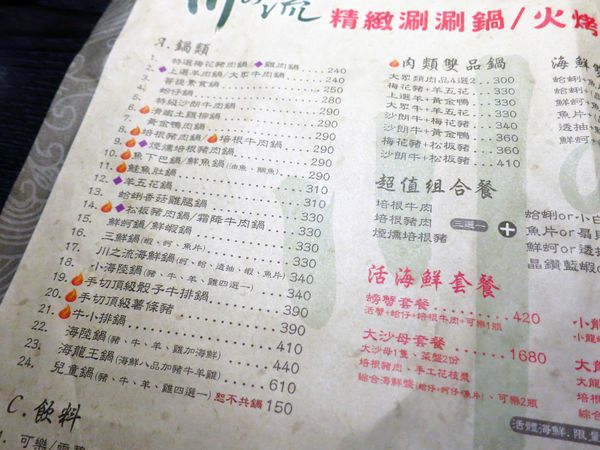 川の流 精緻涮涮鍋/火烤
A. 鍋類
1. 特選梅花豬肉鍋/雞肉鍋 240
2. 上選羊肉鍋/大眾牛肉鍋 240
3. 菩提素食鍋 250
4. 蛤仔鍋 280
5. 特級沙朗牛肉鍋 290
6. 清幽土雞柳鍋 290
7. 黃金鴨肉鍋 290
8. 培根豬肉鍋/培根牛肉鍋 290
9. 煙燻培根豬肉鍋 290
10. 魚下巴鍋/鮮魚鍋(油魚、鯛魚) 290
11. 鮭魚肚鍋 310
12. 羊五花鍋 310
13. 蛤蜊香菇雞腿鍋 330
14. 松板豬肉鍋/霜降牛肉鍋 330
15. 鮮蚵鍋/鮮蝦鍋 340
16. 三鮮鍋(蝦、蚵、魚片) 340
17. 川之流海鮮鍋(蚵、蛤、透抽、蝦、魚片) 340
18. 小海陸鍋(豬、牛、羊、雞四選一) 340
19. 手切頂級骰子牛排鍋 390
20. 手切頂級薯條豬 390
21. 牛小排鍋 410
22. 海陸鍋(豬、牛、羊、雞加海鮮) 440
23. 海龍王鍋(海鮮八品加豬牛羊雞) 610
24. 兒童鍋(豬、牛、羊、雞四選一)恕不共鍋 150
C. 飲料
1. 可樂/雪碧
肉類雙品鍋
大眾類肉品4選2 330
梅花豬+羊五花 330
上選羊+黃金鴨 330
大眾牛+羊五花 330
沙朗牛+梅花豬 340
沙朗牛+黃金鴨 360
梅花豬+松板豬 360
沙朗牛+松板豬 410
超值組合餐
培根牛肉
培根豬肉
煙燻培根豬
三選一 +
活海鮮套餐
螃蟹套餐 420
活蟹+蛤仔+培根牛肉+可樂1瓶
大沙母套餐 1680
大沙母1隻、菜盤2份
培根豬肉、手工花枝漿
綜合海鮮盤(蛤仔+蚵仔+魚片)、可樂2瓶
海鮮雙
蛤蜊or小白
魚片or扇貝
鮮蚵or透
晶鑽藍蝦
小龍
大龍
綜合海鮮
活體海鮮.限量